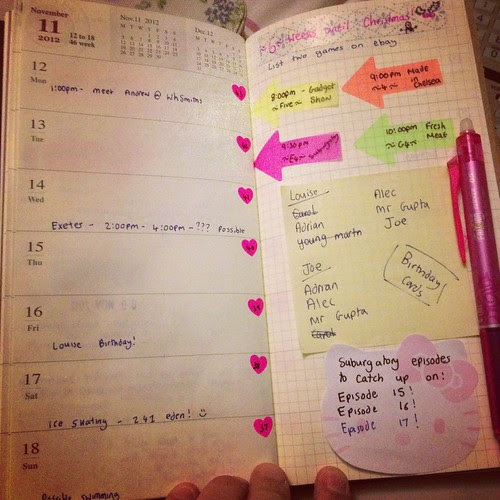 November
11
2012
12 to 18
46 week
Nov.11 2012
Dec.12
M T W T F S S
M T W T F S S
12
Mon
1:00pm - meet Andrew @ WHSmiths
13
Tue
14
Wed
Exeter - 2:00pm - 4:00pm - ??? Possible
15
Thu
16
Fri
Louise Birthday!
17
Sat
Ice Skating - 241 eden!
37
18
Sun
Possible swimming
6 Weeks until Christmas
List two games on ebay
8:00pm - Gadget
~Five~ Show
9:00pm Made
~4~ in
Chelsea
9:30pm
~E4~
10:00pm Fresh
~C4~ Meat
Louise
Carol
Adrian
young martn
Alec
Mr Gupta
Joe
Joe
Adrian
Alec
Mr Gupta
Carol
Birthday
Cards
Suburgatory episodes
to catch up on:
Episode 15!
Episode 16!
Episode 17!